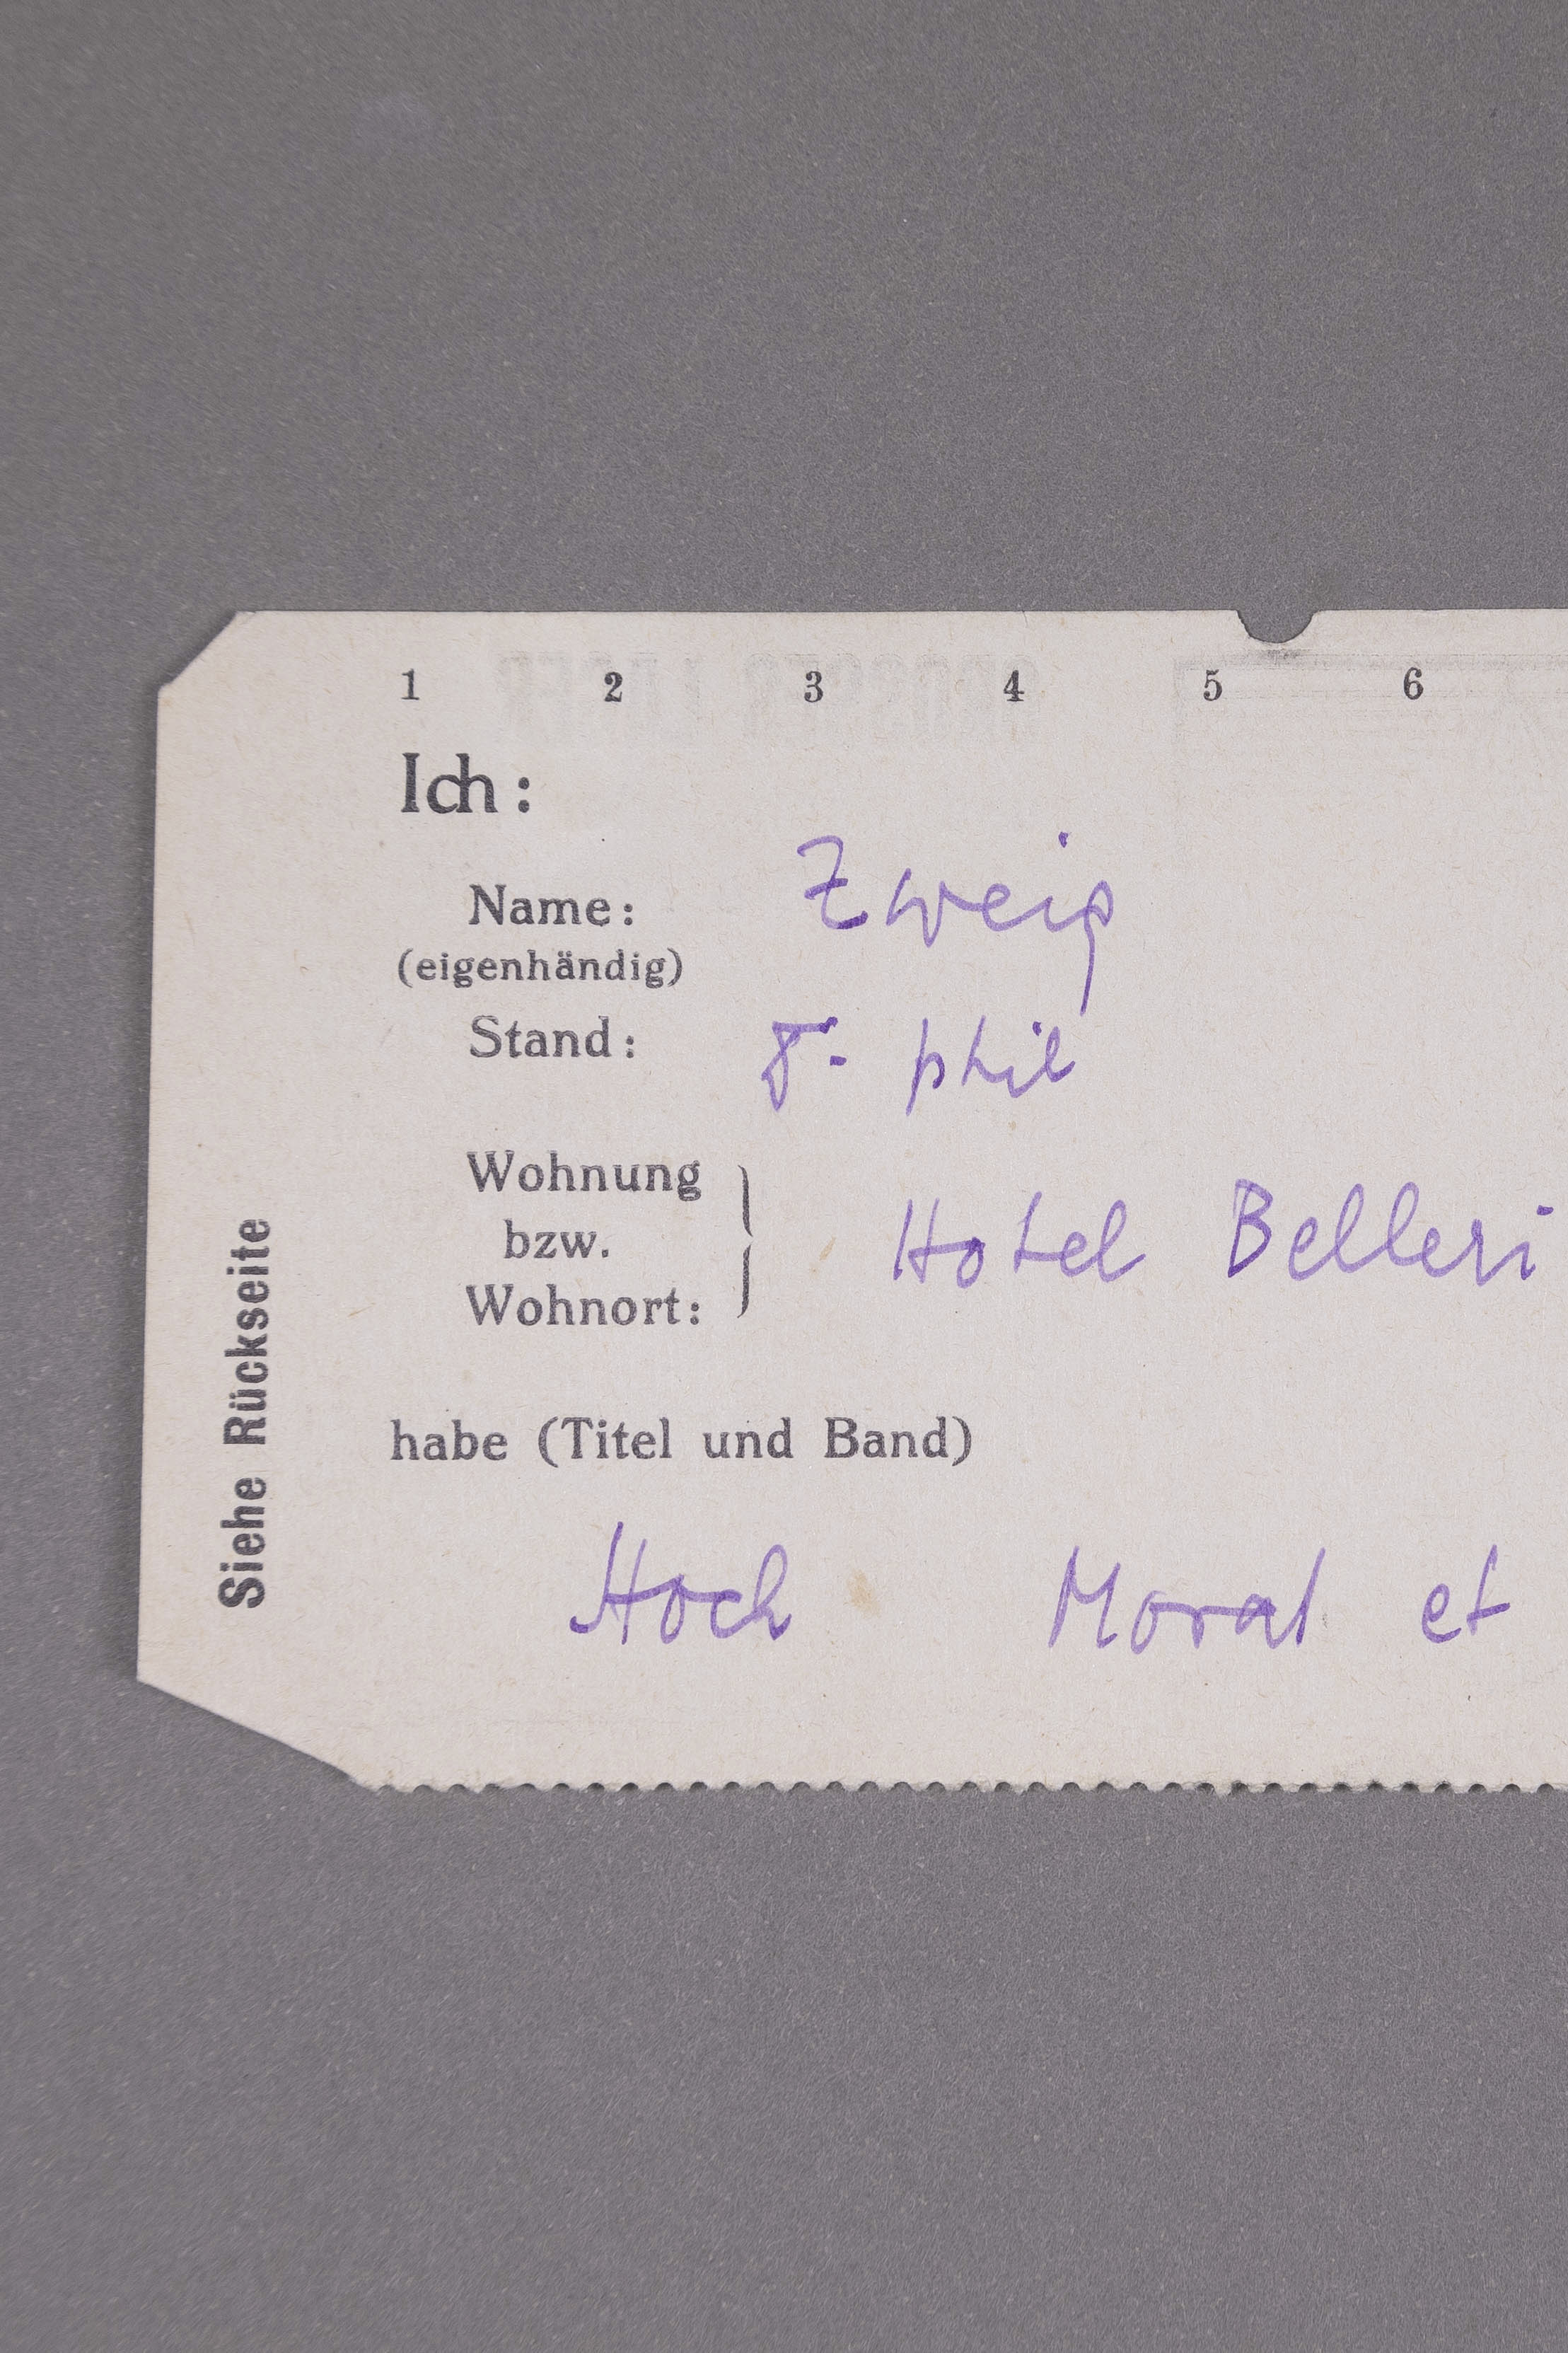 1 2 3 4 5 6
Ich:
Name: Zweig
(eigenhändig)
Stand: Dr. phil
Wohnung
bzw.
Wohnort:
Hotel Belleri
habe (Titel und Band)
Hoch Moral et
Siehe Rückseite